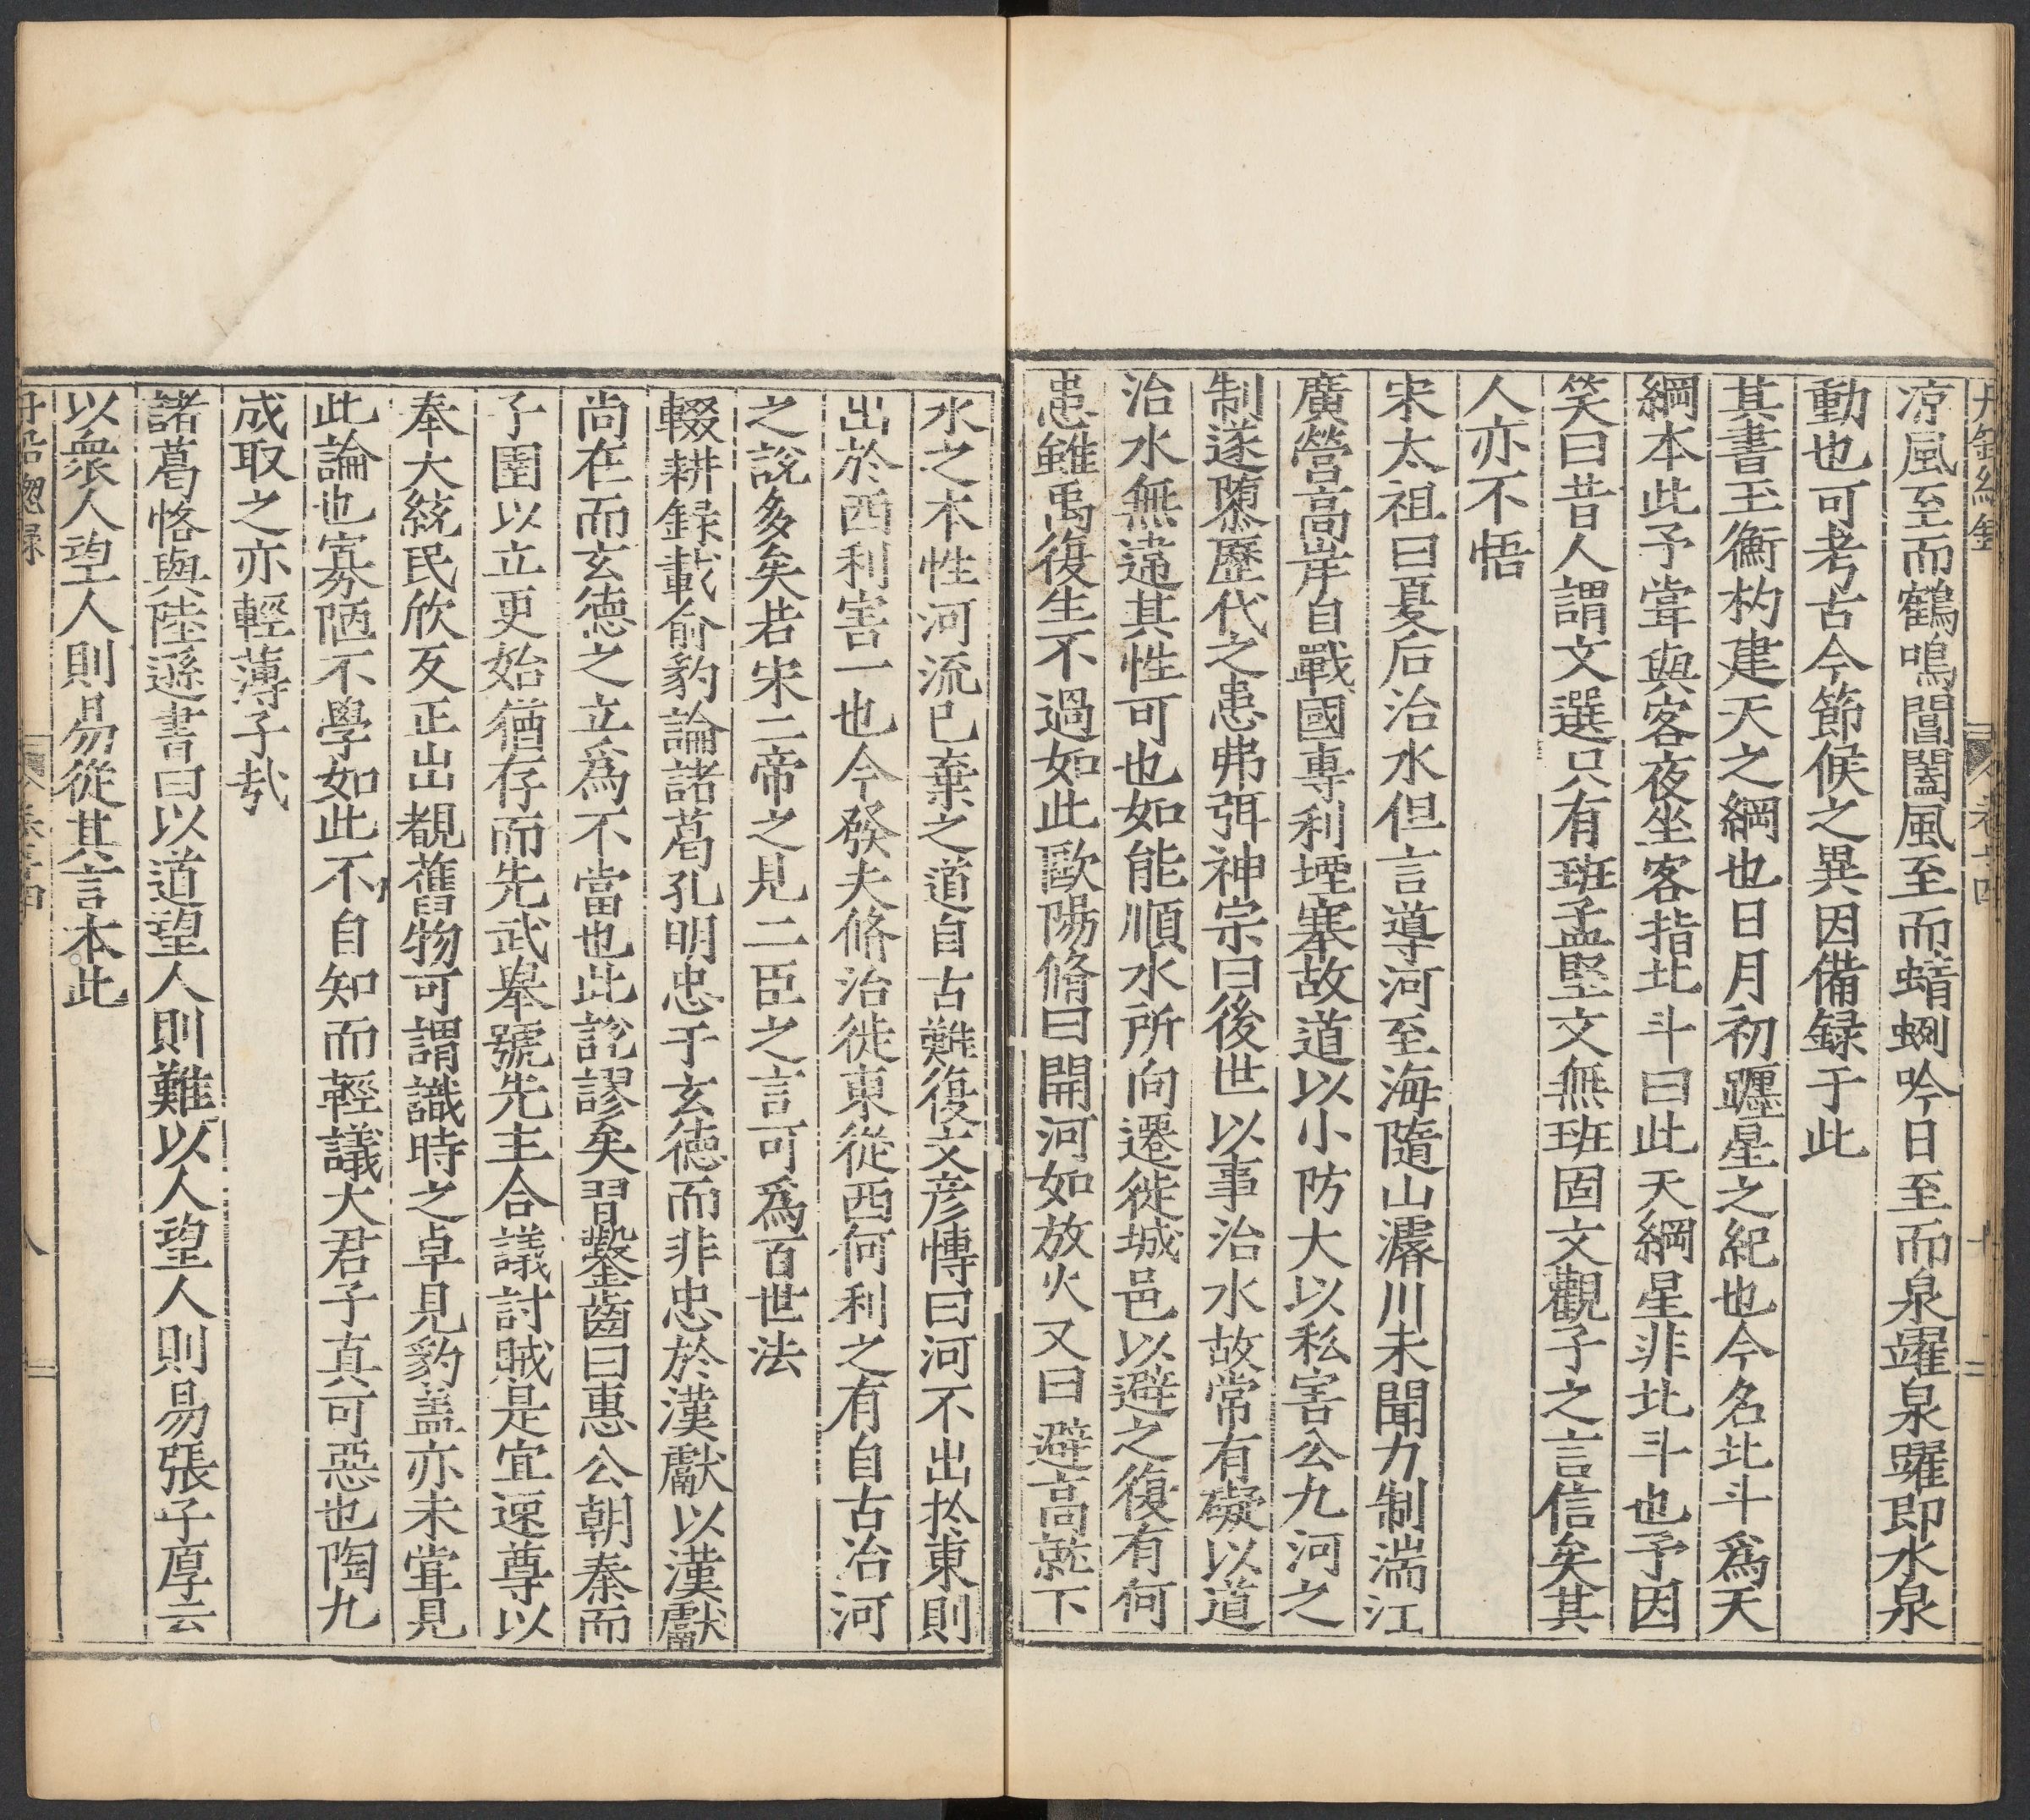 涼風至而鶴鳴閶闔風至而蜻蛚吟日至而泉躍泉躍即水泉
動也可考古今節候之異因備録于此
其書玉衡杓建天之綱也日月初躔星之紀也今名北斗爲天
綱本此予甞與客夜坐客指北斗曰此天綱星非北斗也予因
笑曰昔人謂文選只有班孟堅文無班固文觀子之言信矣其
人亦不悟
宋太祖曰夏后治水但言導河至海隨山濬川未聞力制湍江
廣營高岸自戰國專利堙塞故道以小防大以私害公九河之
制遂隳歷代之患弗弭神宗曰後世以事治水故常有礙以道
治水無違其性可也如能順水所向遷徙城邑以避之復有何
患雖禹復生不過如此歐陽脩曰開河如放火又曰避高就下
水之本性河流已棄之道自古難復文彦博曰河不出於東則
出於西利害一也今發夫脩治徙東從西何利之有自古治河
之說多矣若宋二帝之見二臣之言可爲百世法
輟耕録載俞豹論諸葛孔明忠于玄德而非忠於漢獻以漢獻
尚在而玄德之立爲不當也此說謬矣習鑿齒曰惠公朝秦而
子圉以立更始猶存而先武舉號先主合議討賊是宜速尊以
奉大統民欣反正出覩舊物可謂識時之卓見豹盖亦未甞見
此論也寡陋不學如此不自知而輕議大君子真可惡也陶九
成取之亦輕薄子㢤
諸葛恪與陸遜書曰以道望人則難以人望人則易張子厚云
以衆人望人則易從其言本此
丹鉛總録
卷十四
八